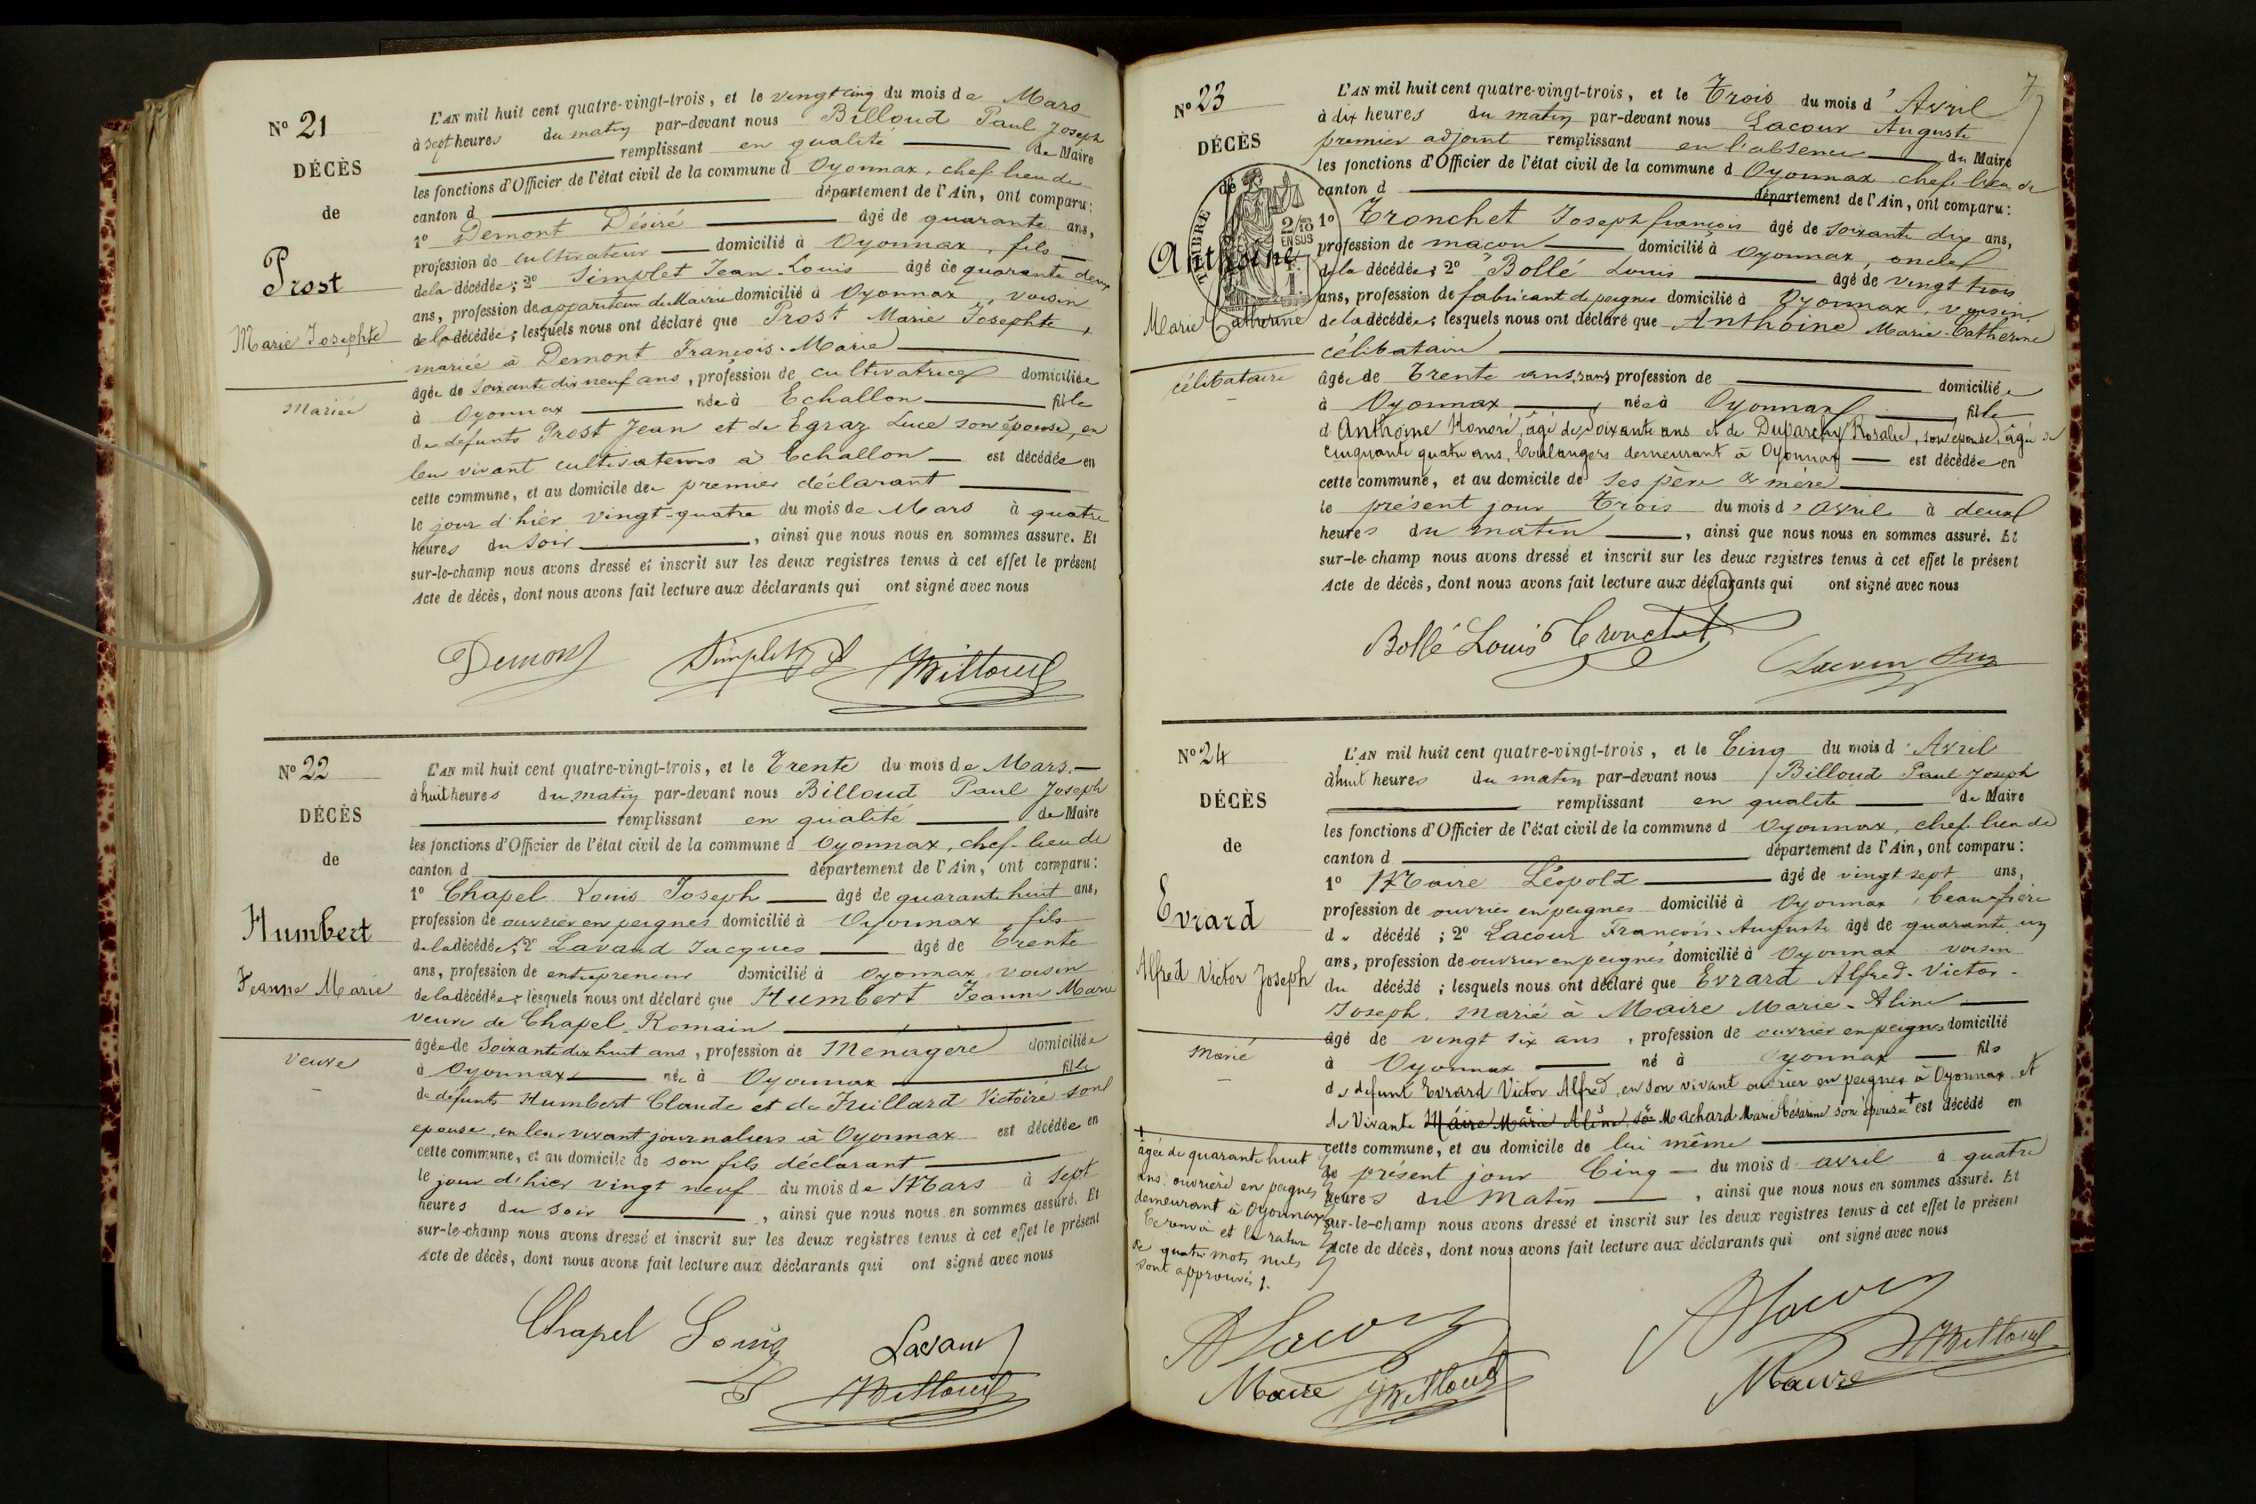 Nº 21
DÉCÈS
de
Prost
Marie Josephte
Mariée
L'AN mil huit cent quatre-vingt-trois, et le vingt cinq du mois de Mars
à sept heures du matin par-devant nous Billoud Paul Joseph
remplissant en qualité de Maire
les fonctions d'Officier de l'état civil de la commune d Oyonnax, chef-lieu de
canton d département de l'Ain, ont comparu:
1º Demont Désiré âgé de quarante ans,
profession de cultivateur domicilié à Oyonnax, fils
de la décédée; 2º Simplet Jean-Louis âgé de quarante deux
ans, profession de appariteur de Mairie domicilié à Oyonnax, voisin
de la décédée; lesquels nous ont déclaré que Prost Marie Josephte,
mariée à Demont François-Marie
âgée de soixante dix neuf ans, profession de cultivatrice domiciliée
à Oyonnax née à Echallon fille
de défunts Prost Jean et de Egraz Luce son épouse, en
leur vivant cultivateurs à Echallon est décédée en
cette commune, et au domicile de premier déclarant
le jour d'hier vingt-quatre du mois de Mars à quatre
heures du soir, ainsi que nous nous en sommes assuré. Et
sur-le-champ nous avons dressé et inscrit sur les deux registres tenus à cet effet le présent
Acte de décès, dont nous avons fait lecture aux déclarants qui ont signé avec nous
Demont Simplet Billoud
Nº 22
DÉCÈS
de
Humbert
Jeanne Marie
Veuve
L'AN mil huit cent quatre-vingt-trois, et le Trente du mois de Mars.
à huit heures du matin par-devant nous Billoud Paul Joseph
remplissant en qualité de Maire
les fonctions d'Officier de l'état civil de la commune d Oyonnax, chef-lieu de
canton d département de l'Ain, ont comparu:
1º Chapel Louis Joseph âgé de quarante huit ans,
profession de ouvrier en peignes domicilié à Oyonnax, fils
de la décédée; 2º Lavand Jacques âgé de Trente
ans, profession de entrepreneur domicilié à Oyonnax, voisin
de la décédée; lesquels nous ont déclaré que Humbert Jeanne Marie
veuve de Chapel Romain
âgée de soixante dix huit ans, profession de Ménagère domiciliée
à Oyonnax née à Oyonnax fille
de défunts Humbert Claude et de Juillard Victoire son
épouse, en leur vivant journaliers à Oyonnax est décédée en
cette commune, et au domicile de son fils déclarant
le jour d'hier vingt neuf du mois de Mars à sept
heures du soir, ainsi que nous nous en sommes assuré. Et
sur-le-champ nous avons dressé et inscrit sur les deux registres tenus à cet effet le présent
Acte de décès, dont nous avons fait lecture aux déclarants qui ont signé avec nous
Chapel Louis Lavand
Billoud
7
Nº 23
DÉCÈS
de
TIMBRE
2/10
EN SUS
Anthoine
Marie Catherine
célibataire
L'AN mil huit cent quatre-vingt-trois, et le Trois du mois d'Avril
à dix heures du matin par-devant nous Lacour Auguste
premier adjoint remplissant en l'absence du Maire
les fonctions d'Officier de l'état civil de la commune d Oyonnax chef-lieu de
canton d département de l'Ain, ont comparu:
1º Tronchet Joseph françois âgé de soixante dix ans,
profession de maçon domicilié à Oyonnax, oncle
de la décédée; 2º Bollé Louis âgé de vingt trois
ans, profession de fabricant de peignes domicilié à Oyonnax, voisin
de la décédée; lesquels nous ont déclaré que Anthoine Marie-Catherine
célibataire
âgée de Trente ans, sans profession de domiciliée
à Oyonnax, née à Oyonnax, fille
d Anthoine Honoré, âgé de soixante ans et de Duparchy Rosalie, son épouse, âgée de
cinquante quatre ans, boulangers demeurant à Oyonnax est décédée en
cette commune, et au domicile de ses père & mère
le présent jour Trois du mois d'avril à deux
heures du matin, ainsi que nous nous en sommes assuré. Et
sur-le-champ nous avons dressé et inscrit sur les deux registres tenus à cet effet le présent
Acte de décès, dont nous avons fait lecture aux déclarants qui ont signé avec nous
Bollé Louis Tronchet
Nº 24
DÉCÈS
de
Evrard
Alfred Victor Joseph
Marié
L'AN mil huit cent quatre-vingt-trois, et le Cinq du mois d'Avril
à huit heures du matin par-devant nous Billoud Paul Joseph
remplissant en qualité de Maire
les fonctions d'Officier de l'état civil de la commune d Oyonnax, chef-lieu de
canton d département de l'Ain, ont comparu:
1º Maire Léopold âgé de vingt sept ans,
profession de ouvrier en peignes domicilié à Oyonnax, beau-frère
du décédé; 2º Lacour François-Auguste âgé de quarante un
ans, profession de ouvrier en peignes domicilié à Oyonnax voisin
du décédé; lesquels nous ont déclaré que Evrard Alfred-Victor-
Joseph, marié à Maire Marie-Aline
âgé de vingt six ans, profession de ouvrier en peignes domicilié
à Oyonnax né à Oyonnax fils
de défunt Evrard Victor Alfred, en son vivant ouvrier en peignes à Oyonnax et
de vivante Maire Marie Aline, sa Machard Marie Césarine son épouse + est décédé en
cette commune, et au domicile de lui même
le présent jour Cinq du mois d avril à quatre
heures du Matin, ainsi que nous nous en sommes assuré. Et
sur-le-champ nous avons dressé et inscrit sur les deux registres tenus à cet effet le présent
Acte de décès, dont nous avons fait lecture aux déclarants qui ont signé avec nous
+
âgée de quarante huit
ans, ouvrière en peignes
demeurant à Oyonnax
Le renvoi et la rature
de quatre mots nuls
sont approuvés.
A Lacour
Maire Billoud
A Lacour
Billoud
Maire